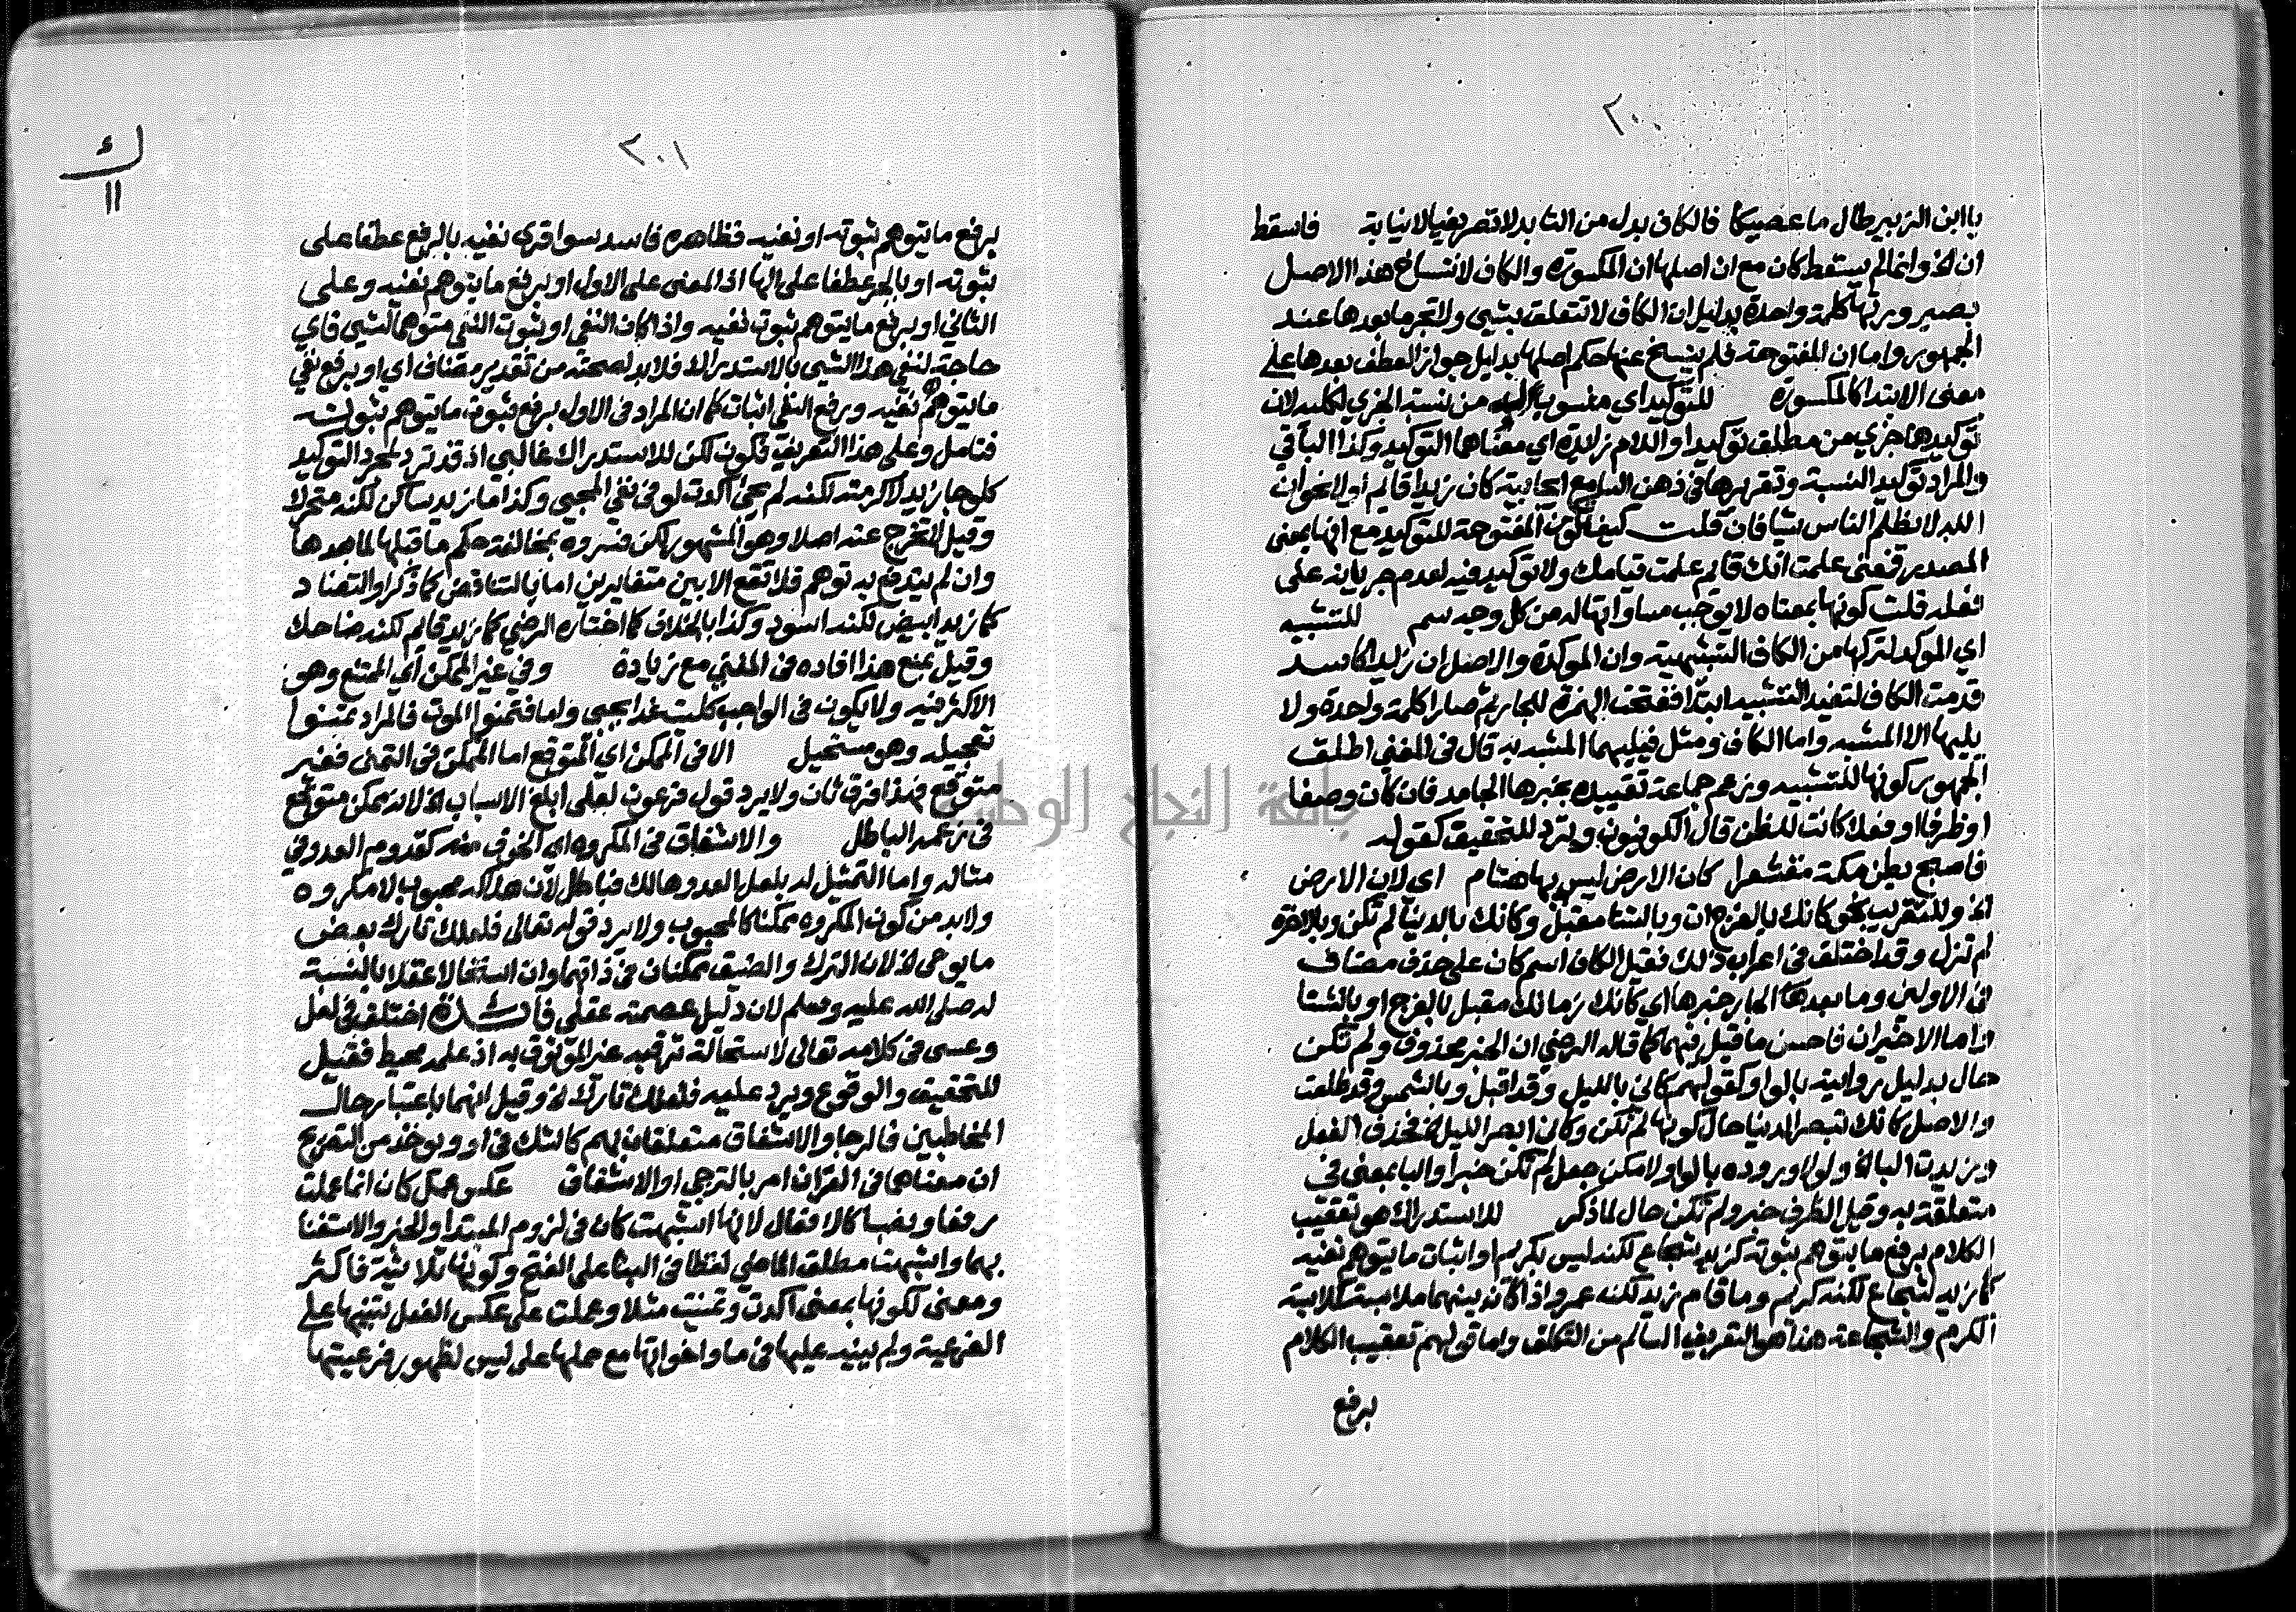 ٢٠٠
يا ابن الزبير طال ما عصيكا فالكاف بدل من التا بدلا تصريفيا لا نيابة فاسقط
ان الخ وانما لم يسقط كان مع ان اصلها ان المكسورة والكاف لانتساخ هذا الاصل
بصيرورتها كلمة واحدة بدليل ان الكاف لا تتعلق بشي ولا تجر ما بعدها عند
الجمهور واما ان المفتوحة فلم ينسخ عنها حكم اصلها بدليل جواز العطف بعدها على
معنى الابتدا كالمكسورة للتوكيد اي منسوبة اليه من نسبة الجزي لكليه لان
توكيدها جزي من مطلق توكيد او اللام زايدة اي معناها التوكيد وكذا الباقي
والمراد توكيد النسبة وتقريرها في ذهن السامع ايجابية كان زيدا قايم او لا نحو ان
الله لا يظلم الناس شيا فان قلت كيف تكون المفتوحة للتوكيد مع انها بمعنى
المصدر فمعنى علمت انك قايم علمت قيامك ولا توكيد فيه لعدم جريانه على
فعله قلت كونها بمعناه لا يوجب مساواتها له من كل وجه سم للتشبيه
اي الموكد لتركبها من الكاف التشبيهية وان الموكدة والاصل ان زيدا كاسد
قدمت الكاف لتفيد التشبيه ابتدا ففتحت الهمزة للجار ثم صارا كلمة واحدة ولا
يليها الا المشبه واما الكاف ومثل فيليهما المشبه به قال في المغني اطلق
الجمهور كونها للتشبيه وزعم جماعة تقييده بخبرها الجامد فان كان وصفا
او ظرفا او فعلا كانت للظن قال الكوفيون وترد للتحقيق كقوله
فاصبح بطن مكة مقشعرا كان الارض ليس بها هشام اي لان الارض
الخ وللتقريب نحو كانك بالفرج ات وبالشتا مقبل وكانك بالدنيا لم تكن وبالاخرة
لم تزل وقد اختلف في اعراب ذلك فقيل الكاف اسم كان على حذف مضاف
في الاولين وما بعدها الجار خبرها اي كانك زمانك مقبل بالفرج او بالشتا
واما الاخيران فاحسن ما قيل فيهما كما قاله الرضي ان الخبر محذوف ولم تكن
حال بدليل روايته بالواو كقولهم كاني بالليل وقد اقبل وبالشمس وقد طلعت
والاصل كانك تبصر الدنيا حال كونها لم تكن وكاني ابصر الليل الخ فحذف الفعل
وزيدت البا الخ ولولا وروده بالواو لامكن جعل لم تكن خبرا والبا بمعنى في
متعلقة به وقيل الظرف خبر ولم تكن حال لما ذكر للاستدراك هو تعقيب
الكلام برفع ما يتوهم ثبوته كزيد شجاع لكنه ليس بكريم او اثبات ما يتوهم نفيه
كما زيد شجاع لكنه كريم وما قام زيد لكنه عمرو اذا كان بينهما ملابسة كملابسة
الكرم والشجاعة هذا هو التعريف السالم من التكلف واما قولهم تعقيب الكلام
برفع
٢٠١
ك
١١
برفع ما يتوهم ثبوته او نفيه فظاهره فاسد سوا قري نفيه بالرفع عطفا على
ثبوته او بالجر عطفا على الها اذ المعنى على الاول او برفع ما يتوهم نفيه وعلى
الثاني او برفع ما يتوهم ثبوت نفيه واذا كان النفي او ثبوت النفي متوهما لشي فاي
حاجة لنفي هذا الشي بالاستدراك فلا بد لصحته من تقدير مضاف اي او برفع نفي
ما يتوهم نفيه ورفع النفي اثبات كما ان المراد في الاول برفع ثبوت ما يتوهم ثبوته
فتامل وعلى هذا التعريف فكون لكن للاستدراك غالبي اذ قد ترد لمجرد التوكيد
كلو جا زيد لاكرمته لكنه لم يجئ اكدت لو في نفي المجي وكذا ما زيد ساكن لكنه متحرك
وقيل لا تخرج عنه اصلا وهو المشهور لكن فسروه بمخالفة حكم ما قبلها لما بعدها
وان لم يندفع به توهم فلا تقع الا بين متغايرين اما بالتناقض كما ذكر او التضاد
كما زيد ابيض لكنه اسود وكذا بالخلاف كما اختاره الرضي كما زيد قايم لكنه ضاحك
وقيل يمنع هذا افاده في المغني مع زيادة وفي غير الممكن اي الممتنع وهو
الاكثر فيه ولا يكون في الواجب كليت غدا يجي واما فتمنوا الموت فالمراد تمنوا
تعجيله وهو مستحيل الا في الممكن اي المتوقع اما الممكن في التمني فغير
متوقع فهذا فرق ثان ولا يرد قول فرعون لعلي ابلغ الاسباب الخ لانه ممكن متوقع
في زعمه الباطل والاشفاق في المكروه اي الخوف منه كقدوم العدو في
مثاله واما التمثيل له بلعل العدو هالك فباطل لان هلاكه محبوب لا مكروه
ولا بد من كون المكروه ممكنا كالمحبوب ولا يرد قوله تعالى فلعلك تارك بعض
ما يوحى الخ لان الترك والضيق ممكنان في ذاتهما وان استحالا عقلا بالنسبة
له صلى الله عليه وسلم لان دليل عصمته عقلي فائدة اختلف في لعل
وعسى في كلامه تعالى لاستحالة ترقبه غير الموثوق به اذ علمه محيط فقيل
للتحقيق والوقوع ويرد عليه فلعلك تارك الخ وقيل انهما باعتبار حال
المخاطبين فالرجا والاشفاق متعلقان بهم كالشك في او ويوخذ من التصريح
ان معناها في القران امر بالترجي او الاشفاق عكس عمل كان انما عملت
رفعا ونصبا كالافعال لانها اشبهت كان في لزوم المبتدا والخبر والاستغنا
بهما واشبهت مطلق الماضي لفظا في البنا على الفتح وكونها ثلاثية فاكثر
ومعنى لكونها بمعنى اكدت وتمنيت مثلا وعملت على عكس الفعل تنبيها على
الفرعية ولم ينبه عليها في ما واخواتها مع حملها على ليس لظهور فرعيتها
جامعة النجاح الوطنية